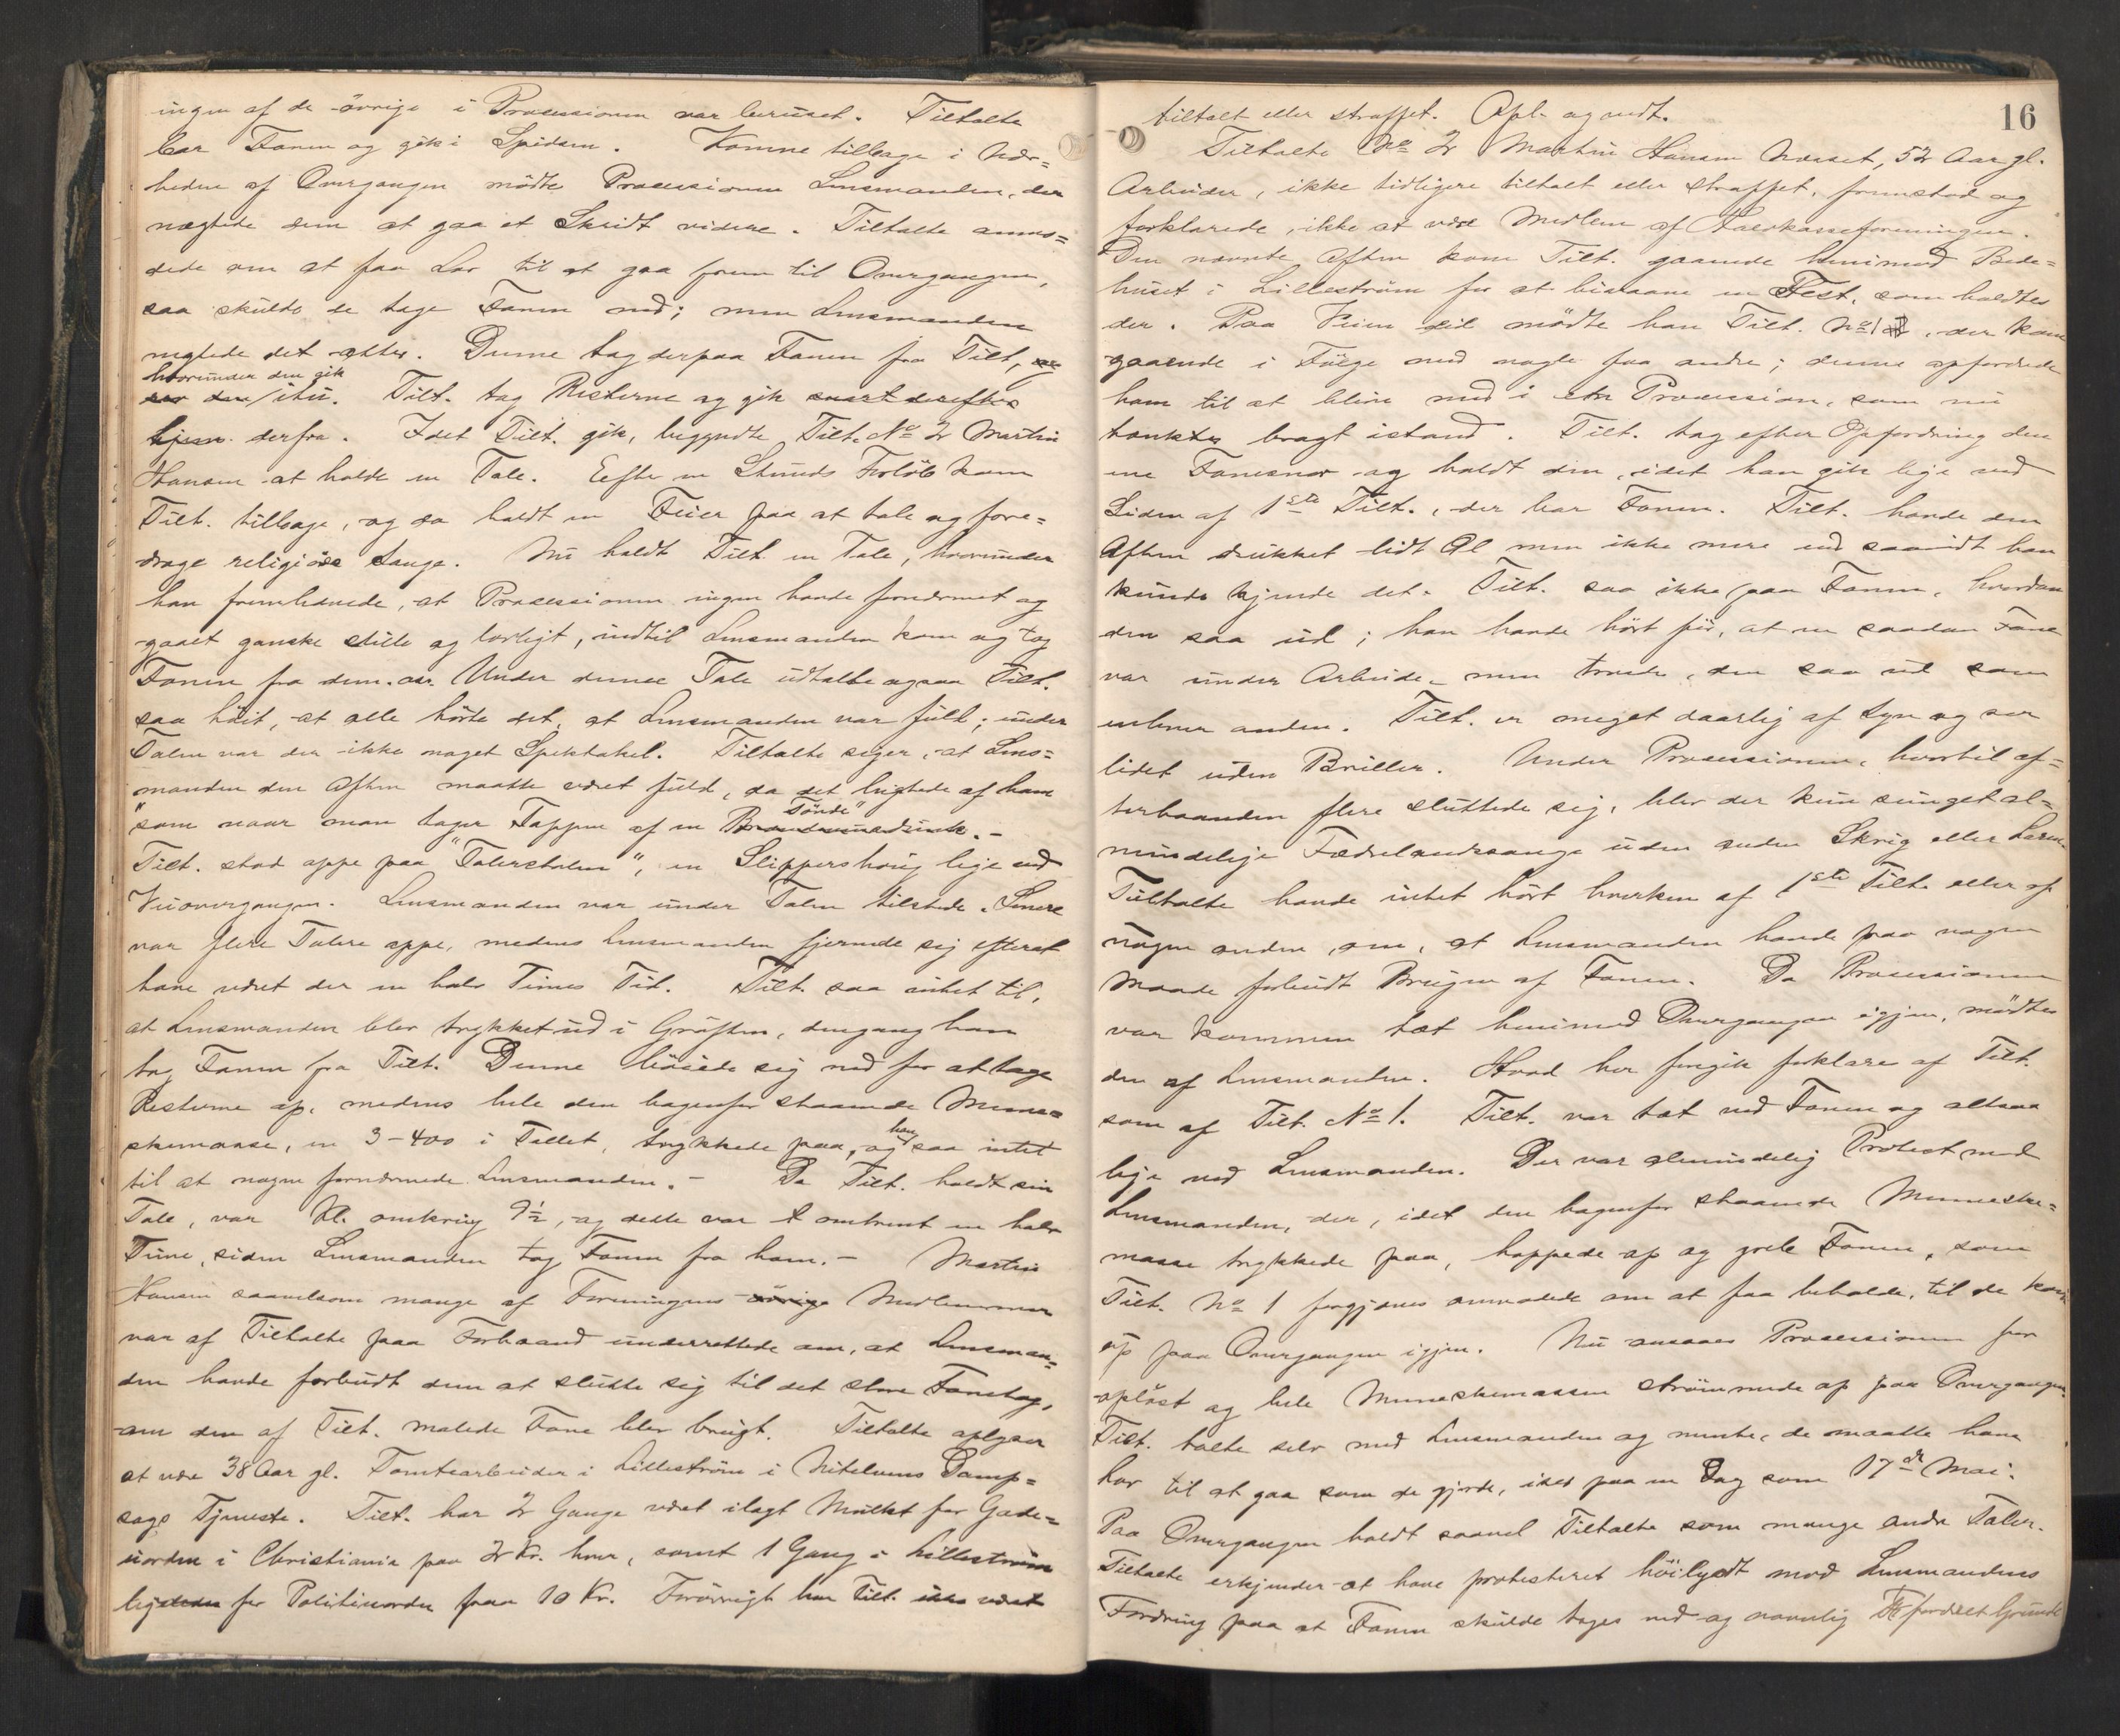 ingen af de øvrige i Processionen var beruset. Tiltalte
bar Fanen og gik i Spidsen. Komne tilbage i Nær=
heden af Overgangen mødte Processionen Lensmanden, der
nægtede dem at gaa et Skridt videre. Tiltalte anmo=
dede om at faa Lov til at gaa frem til Overgangen,
saa skulde de tage Fanen ned; men Lensmanden
negtede det atter. Denne tog derpaa Fanen fra Tilt.,
hvorunder den gik
itu. Tilt. tog Resterne og gik snart derefter
hjem derfra. Idet Tilt. gik, begyndte Tilt. No 2 Martin
Hansen at holde en Tale. Efter en Stunds Forløb kom
Tilt. tilbage, og da holdt en Feier paa at tale og fore=
drage religiøse Sange. Nu holdt Tilt. en Tale, hvorunder
han fremhævede, at Processionen ingen havde fornærmet og
gaaet ganske stille og lovligt, indtil Lensmanden kom og tog
Fanen fra dem. Under denne Tale udtalte ogsaa Tilt.
saa høit, at alle hørte det, at Lensmanden var fuld; under
Talen var der ikke noget Spektakel. Tiltalte siger, at Lens=
manden den Aften maatte været fuld, da det lugtede af ham
Tønde"
"som naar man tager Tappen af en Brændevins.-
Tilt. stod oppe paa "Talerstolen", en Slippershaug lige ved
Veiovergangen. Lensmanden var under Talen tilstede. Senere
var flere Talere oppe, medens Lensmanden fjernede sig efterat
have været der en halv Times Tid. Tilt. saa intet til,
at Lensmanden blev trykket ud i Grøften, dengang han
tog Fanen fra Tilt. Denne bøiede sig ned for at tage
Resterne op, medens hele den bagenfor staaende Menne=
han
skemasse, en 3-400 i Tallet, trykkede paa, og saa intet
til at nogen fornærmede Lensmanden. - Da Tilt. holdt sin
Tale, var Kl. omkring 9½, og dette var omtrent en halv
Time, siden Lensmanden tog Fanen fra ham. - Martin
Hansen saavelsom mange af Foreningens øvrige Medlemmer
var af Tiltalte paa Forhaand underrettede om, at Lensman=
den havde forbudt dem at slutte sig til det store Fanetog,
om den af Tilt. malede Fane blev brugt. Tiltalte oplyser
at være 38 Aar gl. Tomtearbeider i Lillestrøm i Nitelvens Damp=
sags Tjeneste. Tilt. har 2 Gange været ilagt Mulkt for Gade=
uorden i Christiania paa 2 Kr. hver, samt 1 Gang i Lillestrøm
ligeledes for Politiuorden paa 10 Kr. Forøvrigt har Tilt. ikke været
16
tiltalt eller straffet. Opl. og vedt.
Tiltalte No 2 Martin Hansen Næsset, 52 Aar gl.
Arbeider, ikke tidligere tiltalt eller straffet, fremstod og
forklarede, ikke at være Medlem af Foreningen.
Den nævnte Aften kom Tilt. gaaende henimod Bede=
huset i Lillestrøm for at bivaane en Fest, som holdtes
der. Paa Veien did mødte han Tilt. No 1, der kom
gaaende i Følge med nogle faa andre; denne opfordrede
ham til at blive med i en Procession, som nu
tænktes bragt istand. Tilt. tog efter Opfordring den
ene Fanesnor og holdt den, idet han gik lige ved
Siden af 1ste Tilt., der bar Fanen. Tilt. havde den
Aften drukket lidt Øl men ikke mere end saavidt han
kunde kjende det. Tilt. saa ikke paa Fanen, hvordan
den saa ud; han havde hørt før, at en saadan Fane
var under Arbeide, men troede, den saa ud som
enhver anden. Tilt. er meget daarlig af Syn og ser
lidet uden Briller. Under Processionen, hvortil ef=
terhaanden flere sluttede sig, blev der kun sunget al=
mindelige Fædrelandssange uden anden Skrig eller Larm.
Tiltalte havde intet hørt hverken af 1ste Tilt. eller af
nogen anden, om, at Lensmanden havde paa nogen
Maade forbudt Brugen af Fanen. Da Processionen
var kommen tæt henimod Overgangen igjen, mødtes
den af Lensmanden. Hvad her foregik forklares af Tilt.
som af Tilt. No 1. Tilt. var tæt ved Fanen og altsaa
lige ved Lensmanden. Der var almindelig Protest mod
Lensmanden, der, idet den bagenfor staaende Menneske=
masse trykkede paa, hoppede op og greb Fanen, som
Tilt. No 1 forgjæves anmodede om at faa beholde, til de kom
op paa Overgangen igjen. Nu ansaaes Processionen for
opløst og hele Menneskemassen strømmede op paa Overgangen.
Tilt. talte selv med Lensmanden og mente, de maatte have
Lov til at gaa som de gjorde, idet paa en Dag som 17de Mai.
Paa Overgangen holdt saavel Tiltalte som mange andre Taler.
Tiltalte erkjender at have protesteret høilydt mod Lensmandens
Fordring paa at Fanen skulde tages ned og navnlig fordret Grunde